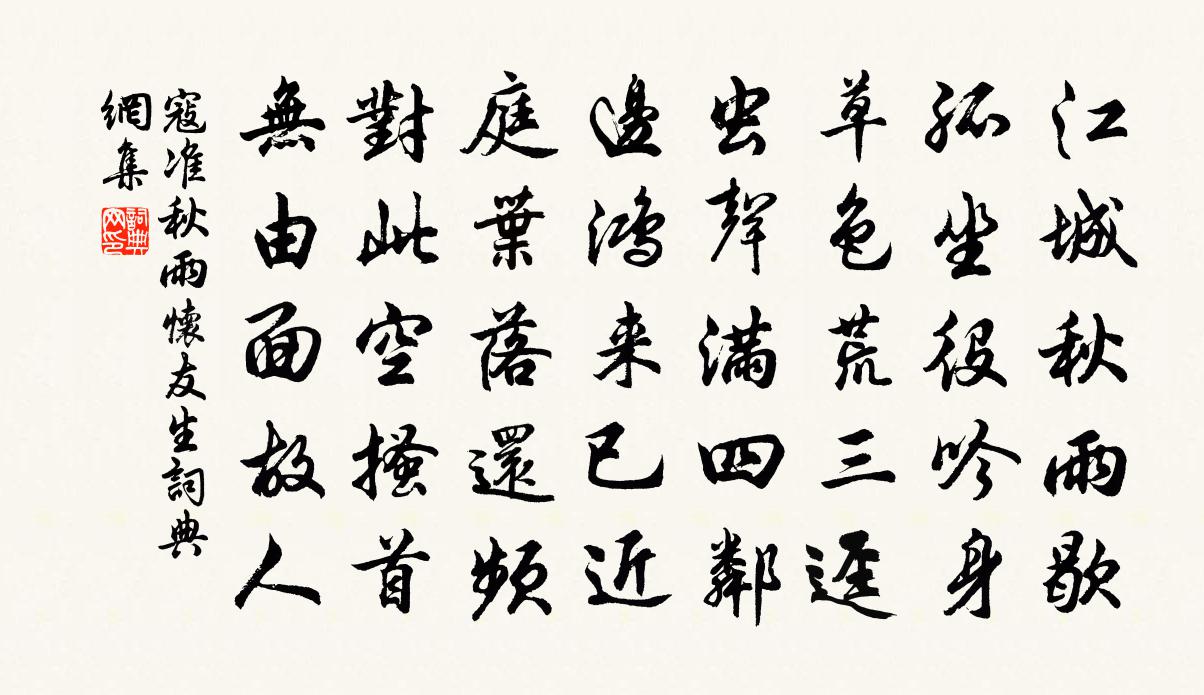 江城秋雨歇
孤坐役吟身
草色荒三逕
虫聲滿四鄰
邊鴻来已近
庭葉落還頻
對此空搔首
無由面故人
寇准秋雨懷友生詞典
網集
詞典
网印